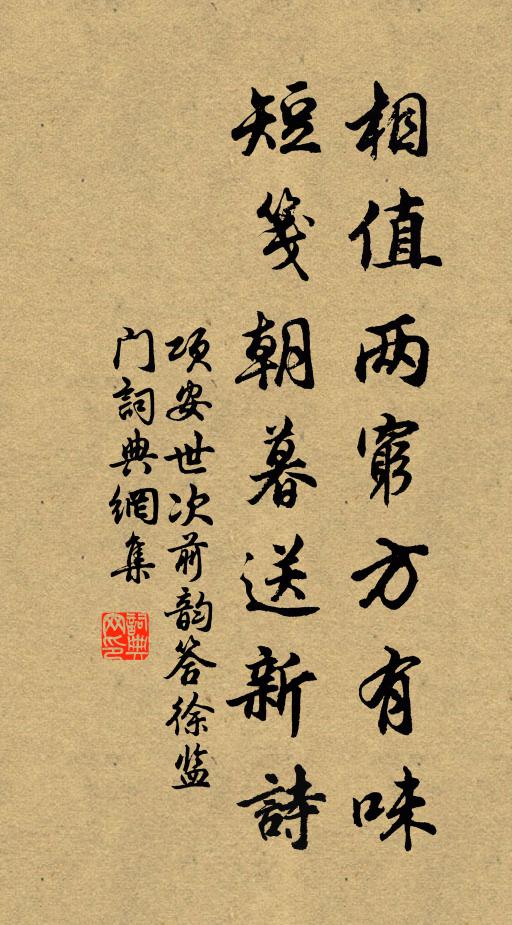 相值两窮方有味
短箋朝暮送新詩
项安世次前韵答徐监
门詞典網集
詞典網印